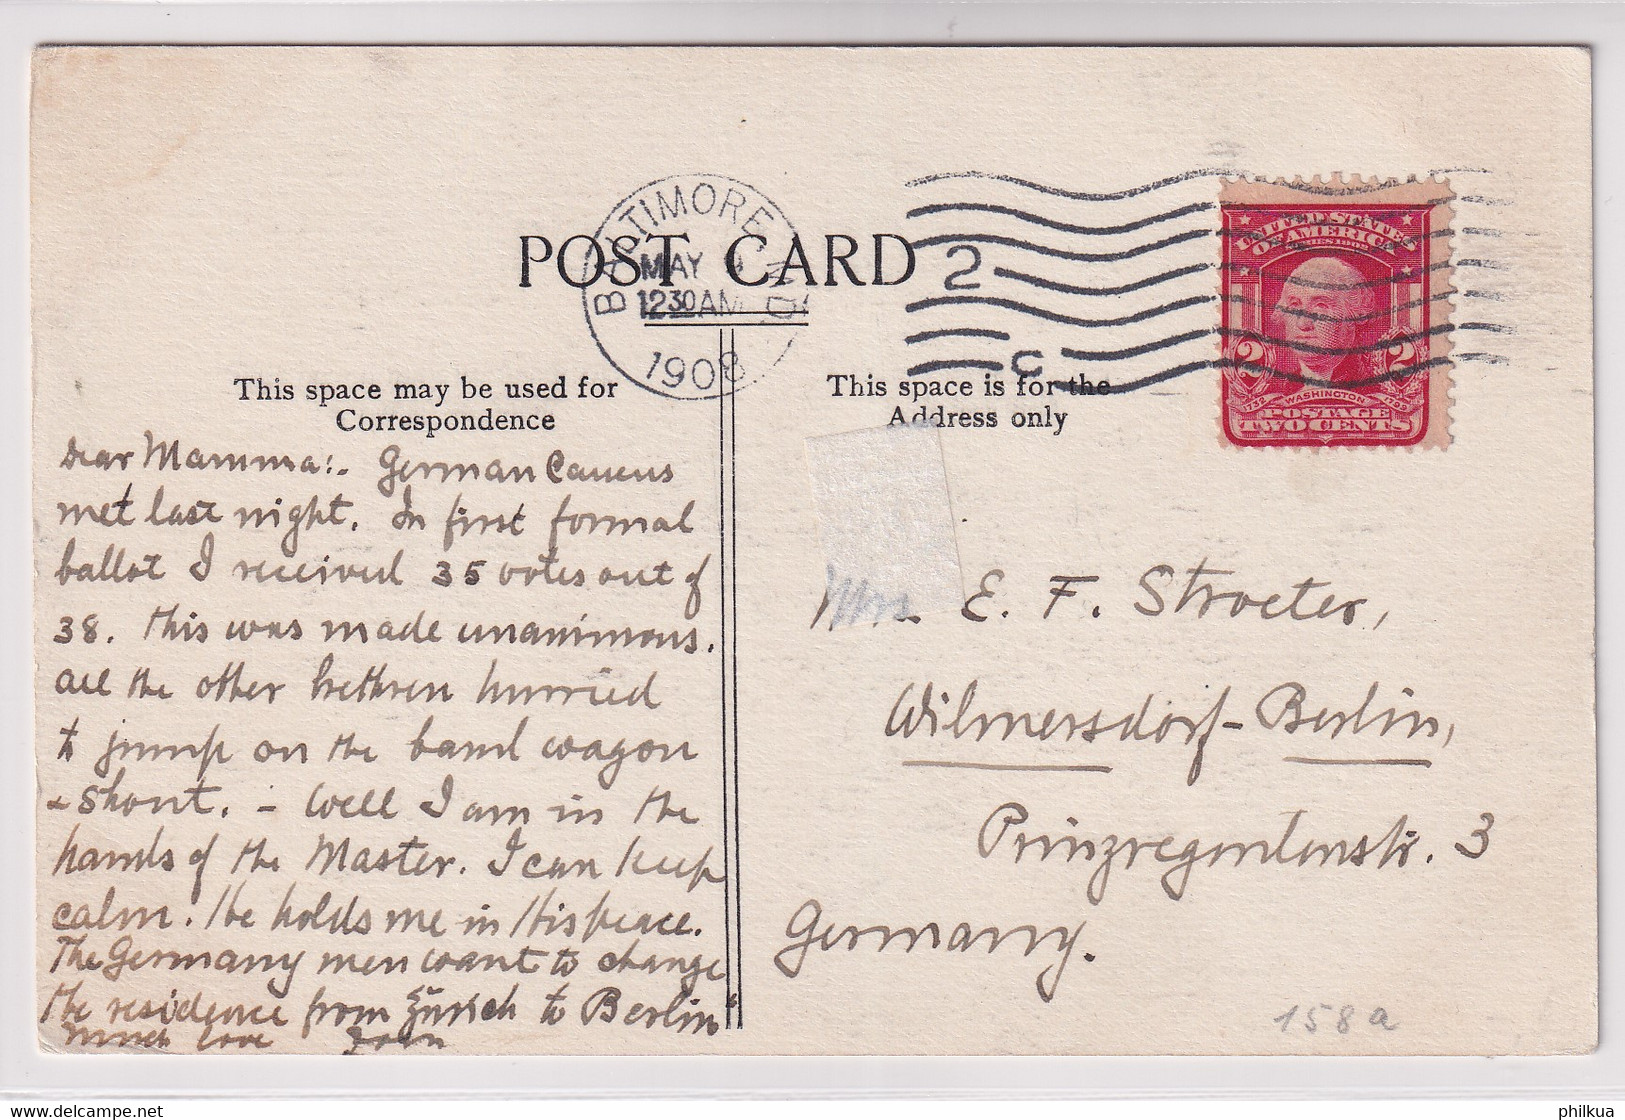 POST CARD
BALTIMORE, MD
MAY
1230 AM
1908
2
C
UNITED STATES
OF AMERICA
SERIES 1902
2 2
1732 WASHINGTON 1799
POSTAGE
TWO CENTS
This space may be used for
Correspondence
Dear Mamma:- German Caucus
met last night. In first formal
ballot I received 35 votes out of
38. This was made unanimous.
All the other brethren hurried
to jump on the band wagon
& shout. - Well I am in the
hands of the Master. I can keep
calm. He holds me in His peace.
The Germany men want to change
the residence from Zürich to Berlin"
Much love
This space is for the
Address only
Mrs. E. F. Stroeter,
Wilmersdorf-Berlin,
Prinzregentenstr. 3
Germany.
158a
www.delcampe.net
philkua